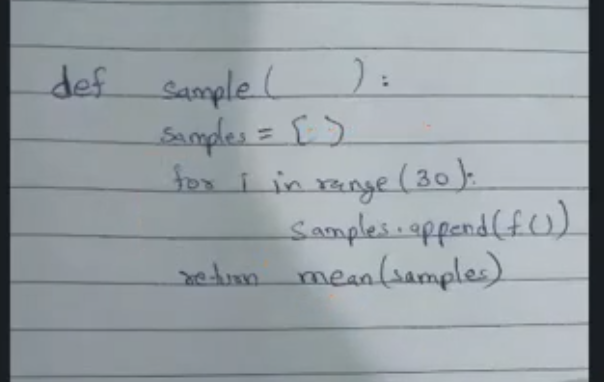 def sample( ):
samples = [ )
for i in range (30):
samples.append(f())
return mean(samples)